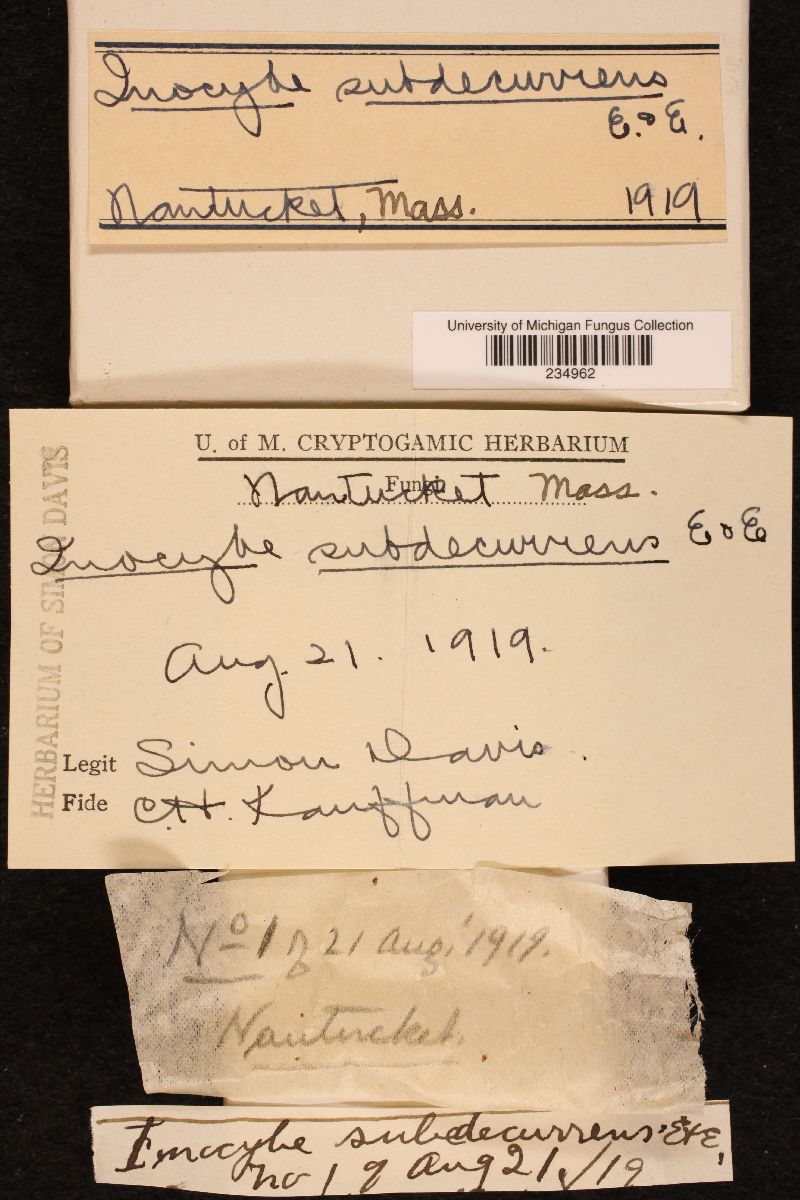 Inocybe subdecurrens
E. & E.
Nantucket, Mass. 1919
University of Michigan Fungus Collection
234962
U. of M. CRYPTOGAMIC HERBARIUM
Fungi
Nantucket Mass.
Inocybe subdecurrens E & E
Aug. 21. 1919.
Legit Simon Davis.
Fide C.H. Kauffman
HERBARIUM OF SIMON DAVIS
No 1 of 21 Aug. 1919.
Nantucket.
Inocybe subdecurrens E&E,
No 1 of Aug 21/19